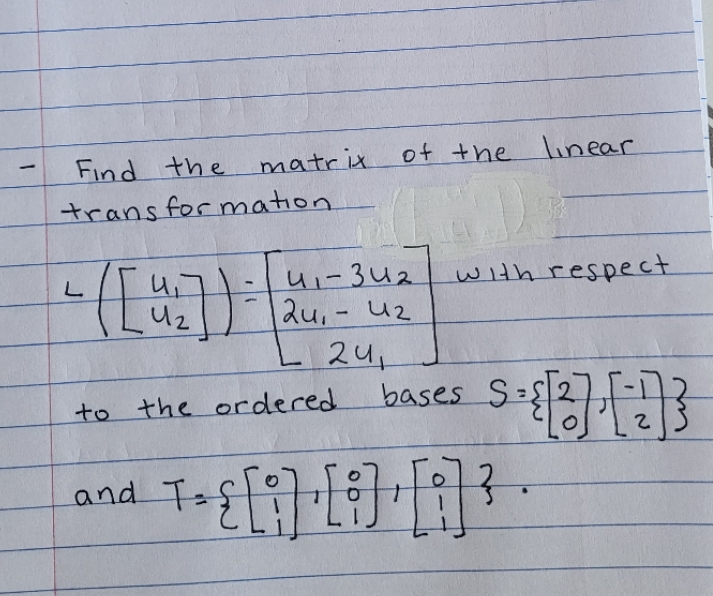 - Find the matrix of the linear
transformation
L([u₁ u₂]) = [u₁-3u₂ 2u₁-u₂ 2u₁] with respect
to the ordered bases S={[2 0],[-1 2]}
and T={[0 1 1],[0 0 1],[0 1 1]}.